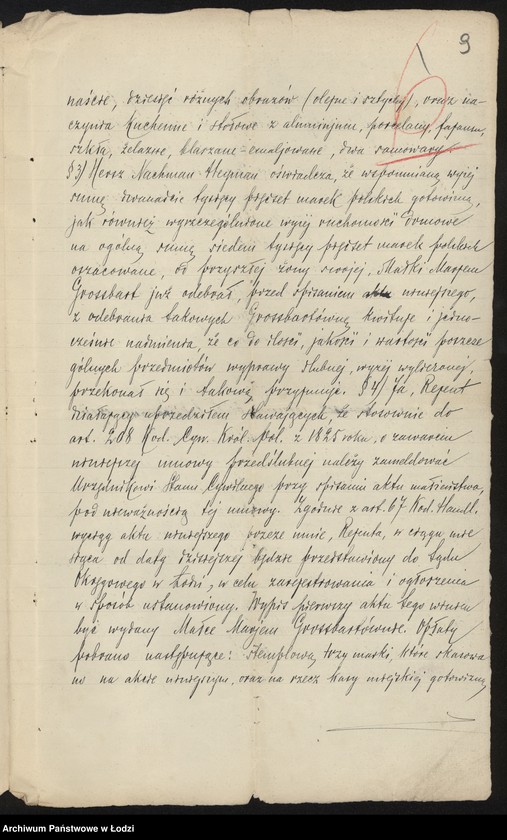 9
naście, dziesięć różnych obrazów (olejne i sztychy), oraz na-
czynia kuchenne i stołowe z aluminjum, porcelany, fajansu,
szkła, żelazne, blaszane-emaljowane, dwa samowary.
§ 3) Hersz Nachman Hegman oświadcza, że wspomnianą wyżej
sumę dwanaście tysięcy pięćset marek polskich gotowizną,
jak również wyszczególnione wyżej ruchomości domowe
na ogólną sumę siedem tysięcy pięćset marek polskich
oszacowane, od przyszłej żony swojej, Małki Marjem
Grossbart już odebrał, przed spisaniem niniejszego,
z odebrania takowych Grossbartównę kwituje i jedno-
cześnie nadmienia, że co do ilości, jakości i wartości poszcze
gólnych przedmiotów wyprawy ślubnej, wyżej wyliczonej,
przekonał się i takową przyjmuje. § 4) Ja, Rejent
działający uprzedziłem stawających, że stosownie do
art. 208 Kod. Cyw. Król. Pol. z 1825 roku, o zawarciu
niniejszej umowy przedślubnej należy zameldować
Urzędnikowi Stanu Cywilnego przy spisaniu aktu małżeństwa,
pod nieważnością tej umowy. Zgodnie z art. 67 Kod. Handl.
wyciąg aktu niniejszego przeze mnie, Rejenta, w ciągu mie
siąca od daty dzisiejszej będzie przedstawiony do Sądu
Okręgowego w Łodzi, w celu zarejestrowania i ogłoszenia
w sposób ustanowiony. Wypis pierwszy aktu tego winien
być wydany Małce Marjem Grossbartównie. Opłaty
pobrano następujące: stemplową trzy marki, które skasowa
no na akcie niniejszym, oraz na rzecz kasy miejskiej gotowizną
Archiwum Państwowe w Łodzi